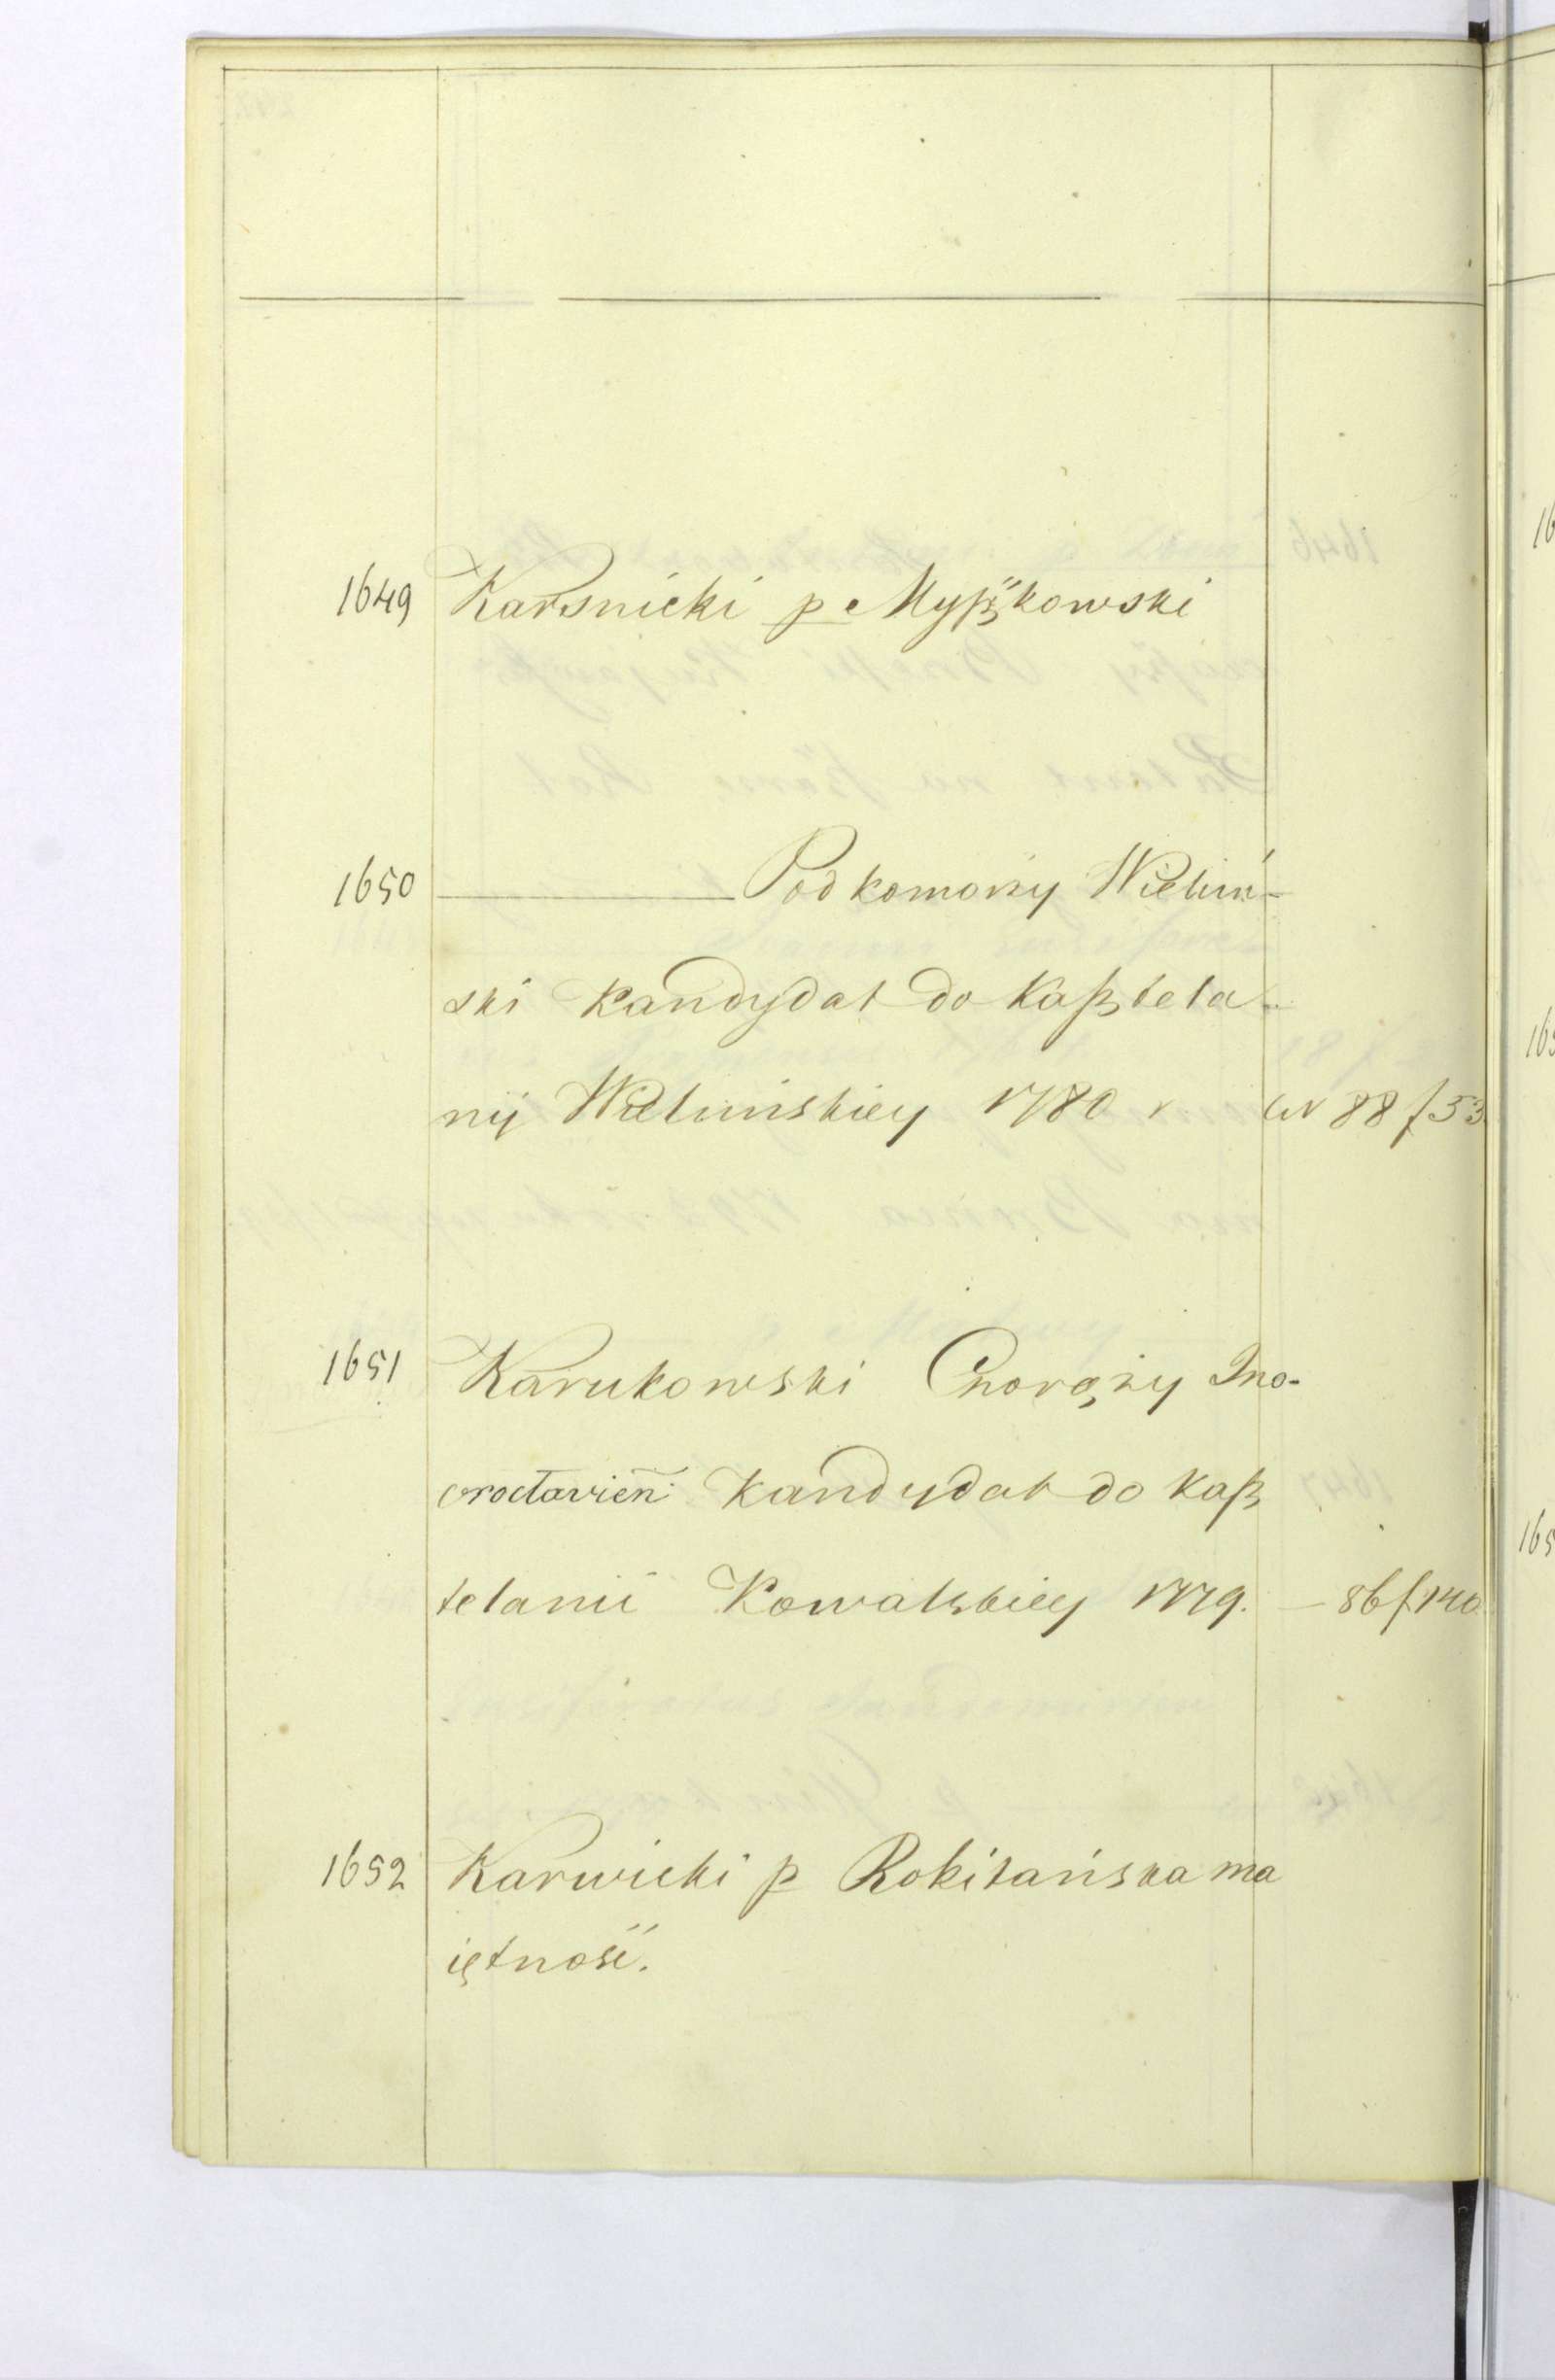 1649 Karsnicki p Myszkowski
1650 ——— Podkomorzy Wieluń-
ski Kandydat do Kasztela-
nij Wieluńskiey 1780 r W 88 f 53.
1651 Karukowski Chorąży Ino-
wrocławień: Kandydat do Kasz
telanii Kowalskiey 1779. — 86 f. 140.
1652 Karwicki p Rokitańska ma
iętność.